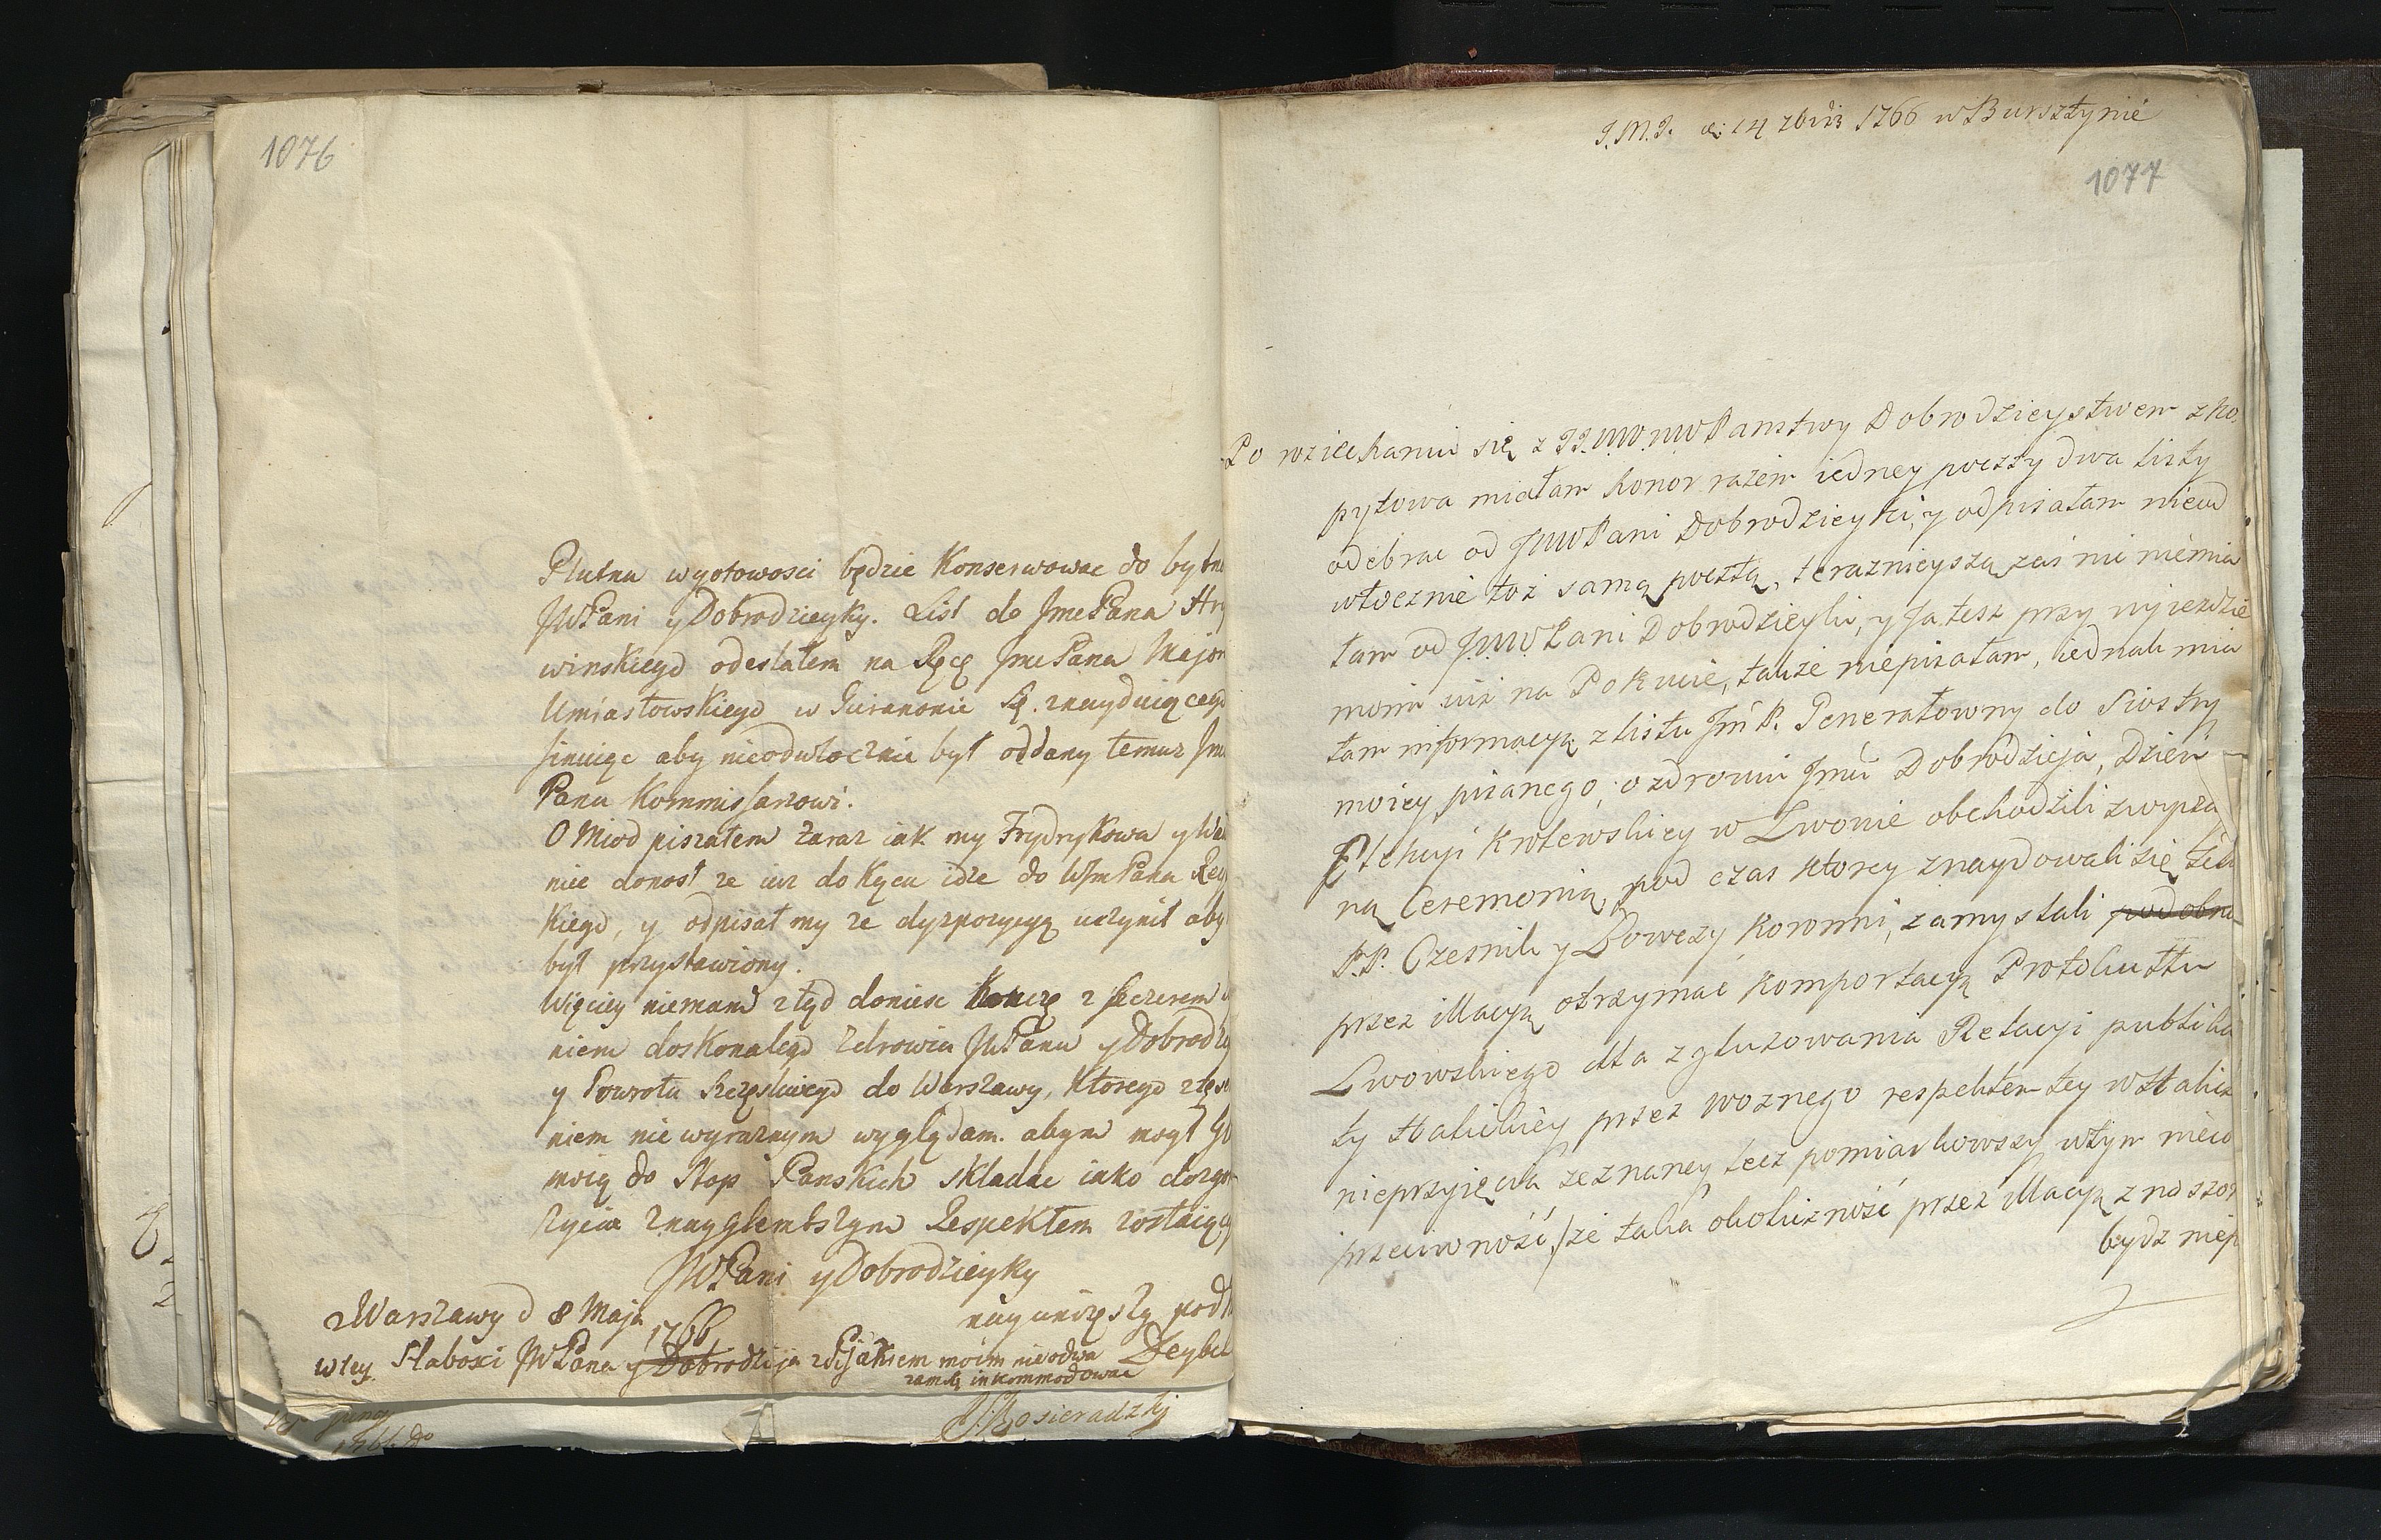 1076
Plutna wgotowosci będzie Konserwowac do bytno
JWPani y Dobrodzieyky. List do JmcPana Hry
winskiego odeslałem na Ręce JmcPana Major
Umiastowskiego w Gieranonie Sę. znayduiącego
sinuiąc aby nieodwłocznie był oddany temuz Jm
Panu Kommissarzowi.
O Miod pisałem zaraz iak my Frydrykowa y
nie donosł ze iuz do Kącu idze do WJmPana
Kiego, y odpisał my ze dyspozycyą uczynił aby
był przystawiony.
Więcey niemam ztąd donieść Konczę z szczerem
niem doskonalego Zdrowia JWPana y Dobrodzi
y Powrotu Szczęsliwego do Warszawy, Ktorego
niem nie wyraznym wyglądam. abym mogł
moię do Stop Panskich skladac iako dozgo
zycia Znayglembszym Respektem zostaiący
JWPani y Dobrodzieyky
z Warszawy d 8 Maja
1766
nayunizęszy pod
w tey Słabosci JWPana y Dobrodzieja z Pisaniem moim nieodwa Deybel
zam się inkommodowac
J.M.J. d: 14 7bris 1766 w Bursztynie
1077
Po roziechaniu się z JJ.WW.WWPanstwy Dobrodzieystwem z Ko
pytowa miałam honor razem iedney poczty dwa listy
odebrac od JWWPani Dobrodzieyki, y odpisałam nieod
włocznie toż samą pocztą, teraznieyszą zaś nic niemia
łam od JWWPani Dobrodzieyki, y Ja tesz przy wyiezdzie
moim iuż na Pokucie, także niepisałam, iednak mia
łam informacyą z listu Jm P. Generałowny do Siostry
moiey pisanego, o zdrowiu Jmci Dobrodzieja, Dzień
Elekcyi Krolewskiey w Lwowie obchodzili zwycza
ną Ceremonią, pod czas ktorey znaydowali się
P.P. Czesnik y Łowczy Koronni, zamyslali podobno
przez Macyą otrzymac komportacyą Protokułłu
Lwowskiego dla zgluzowania Relacyi publika
ty Halickiey przez woznego respektem tey w Halicz
nieprzyięcia zeznaney lecz pomiarkowszy wtym niewo
przeciwność, że taka okoliczność przez Macyą znoszo
bydz niep